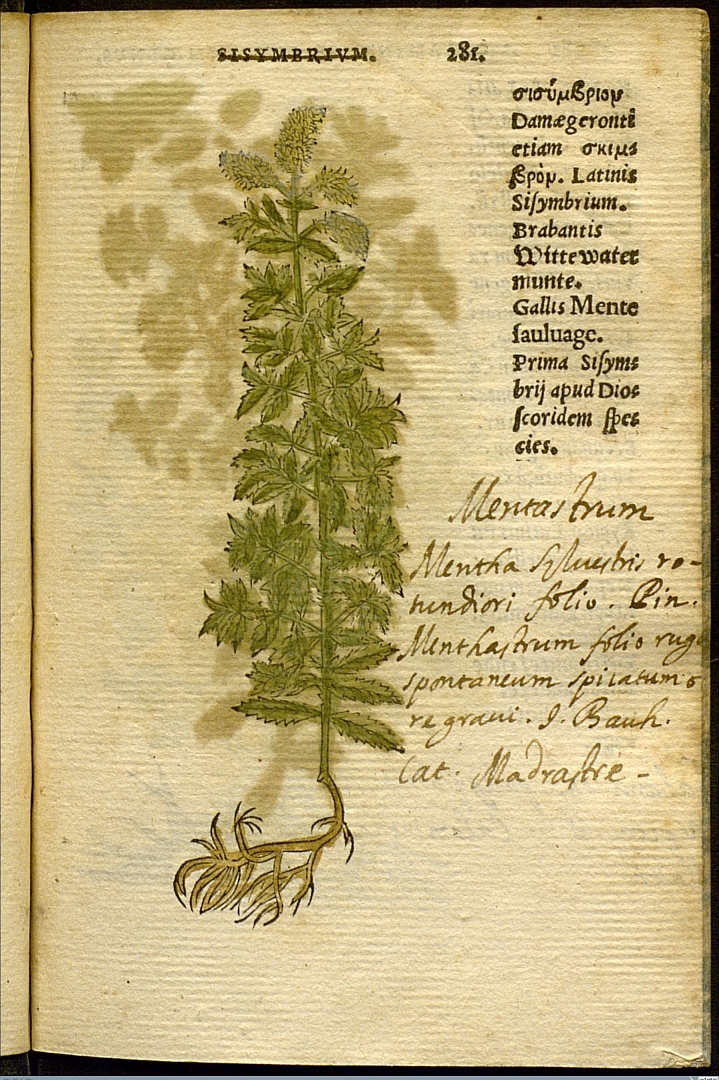 SISYMBRIVM. 281.
σισύμβριον
Damægerontē
etiam σκιμ⸗
βρὸμ. Latinis
Siſymbrium.
Brabantis
Witte water
munte.
Gallis Mente
ſauluage.
Prima Siſym⸗
brij apud Dio⸗
ſcoridem ſpe⸗
cies.
Mentastrum
Mentha Sylvestris ro-
tundiori folio. Pin.
Menthastrum folio rug
spontaneum spicatum o
re gravi. J. Bauh.
Cat. Madrastre -